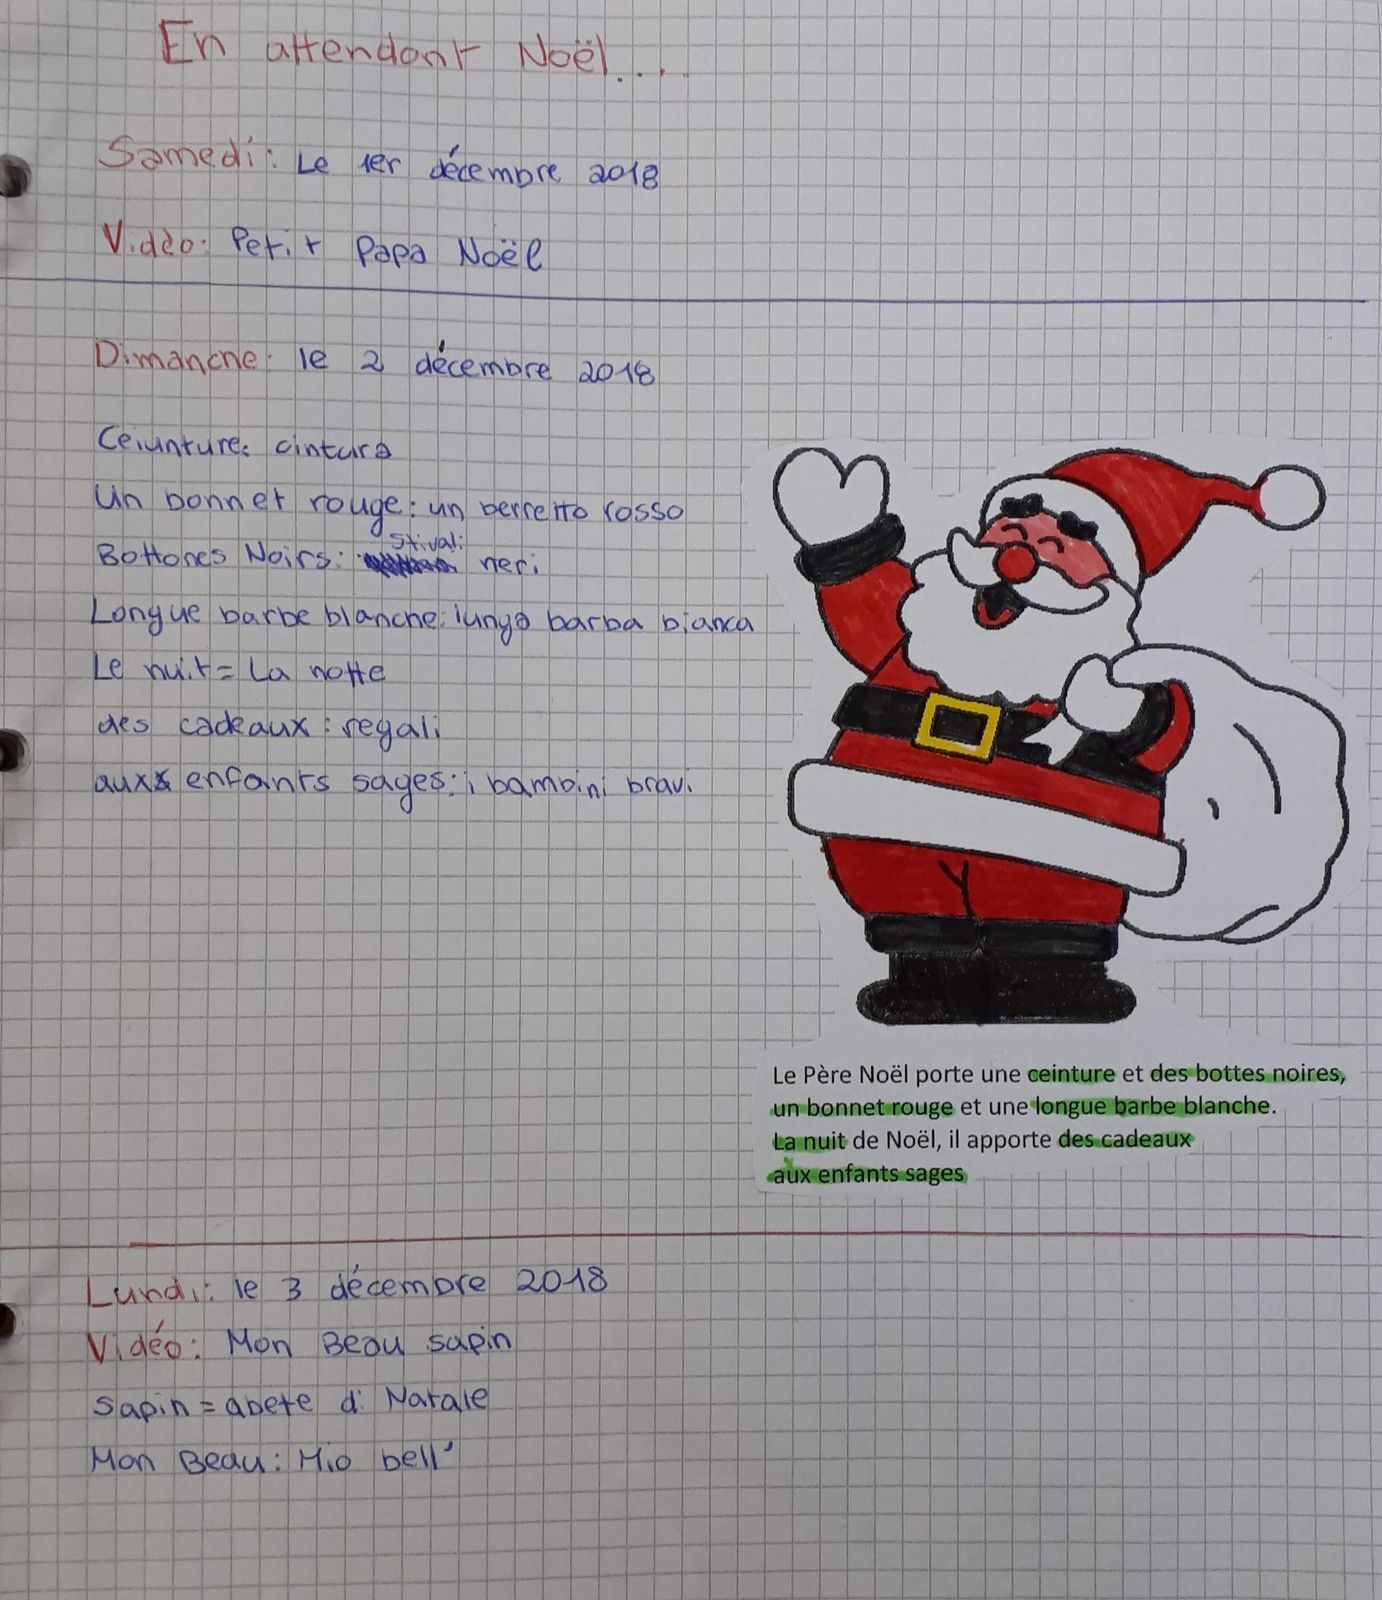 En attendant Noël....
Samedi: Le 1er décembre 2018
Vidèo: Petit Papa Noël
Dimanche: le 2 décembre 2018
Ceiunture: cintura
Un bonnet rouge: un berretto rosso
Stivali
Bottones Noirs: neri
Longue barbe blanche: lunga barba bianca
Le nuit = La notte
des cadeaux: regali
aux enfants sages: i bambini bravi
Le Père Noël porte une ceinture et des bottes noires,
un bonnet rouge et une longue barbe blanche.
La nuit de Noël, il apporte des cadeaux
aux enfants sages
Lundi: le 3 décembre 2018
Vidéo: Mon Beau sapin
Sapin = abete di Natale
Mon Beau: Mio bell'